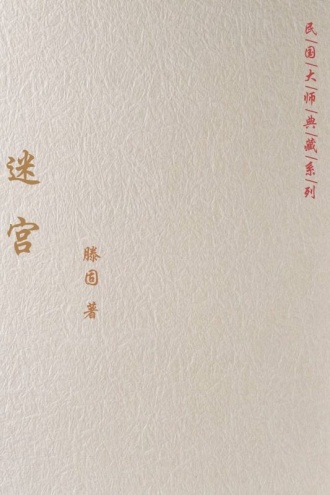 民国大师典藏系列
迷宫
滕固 著